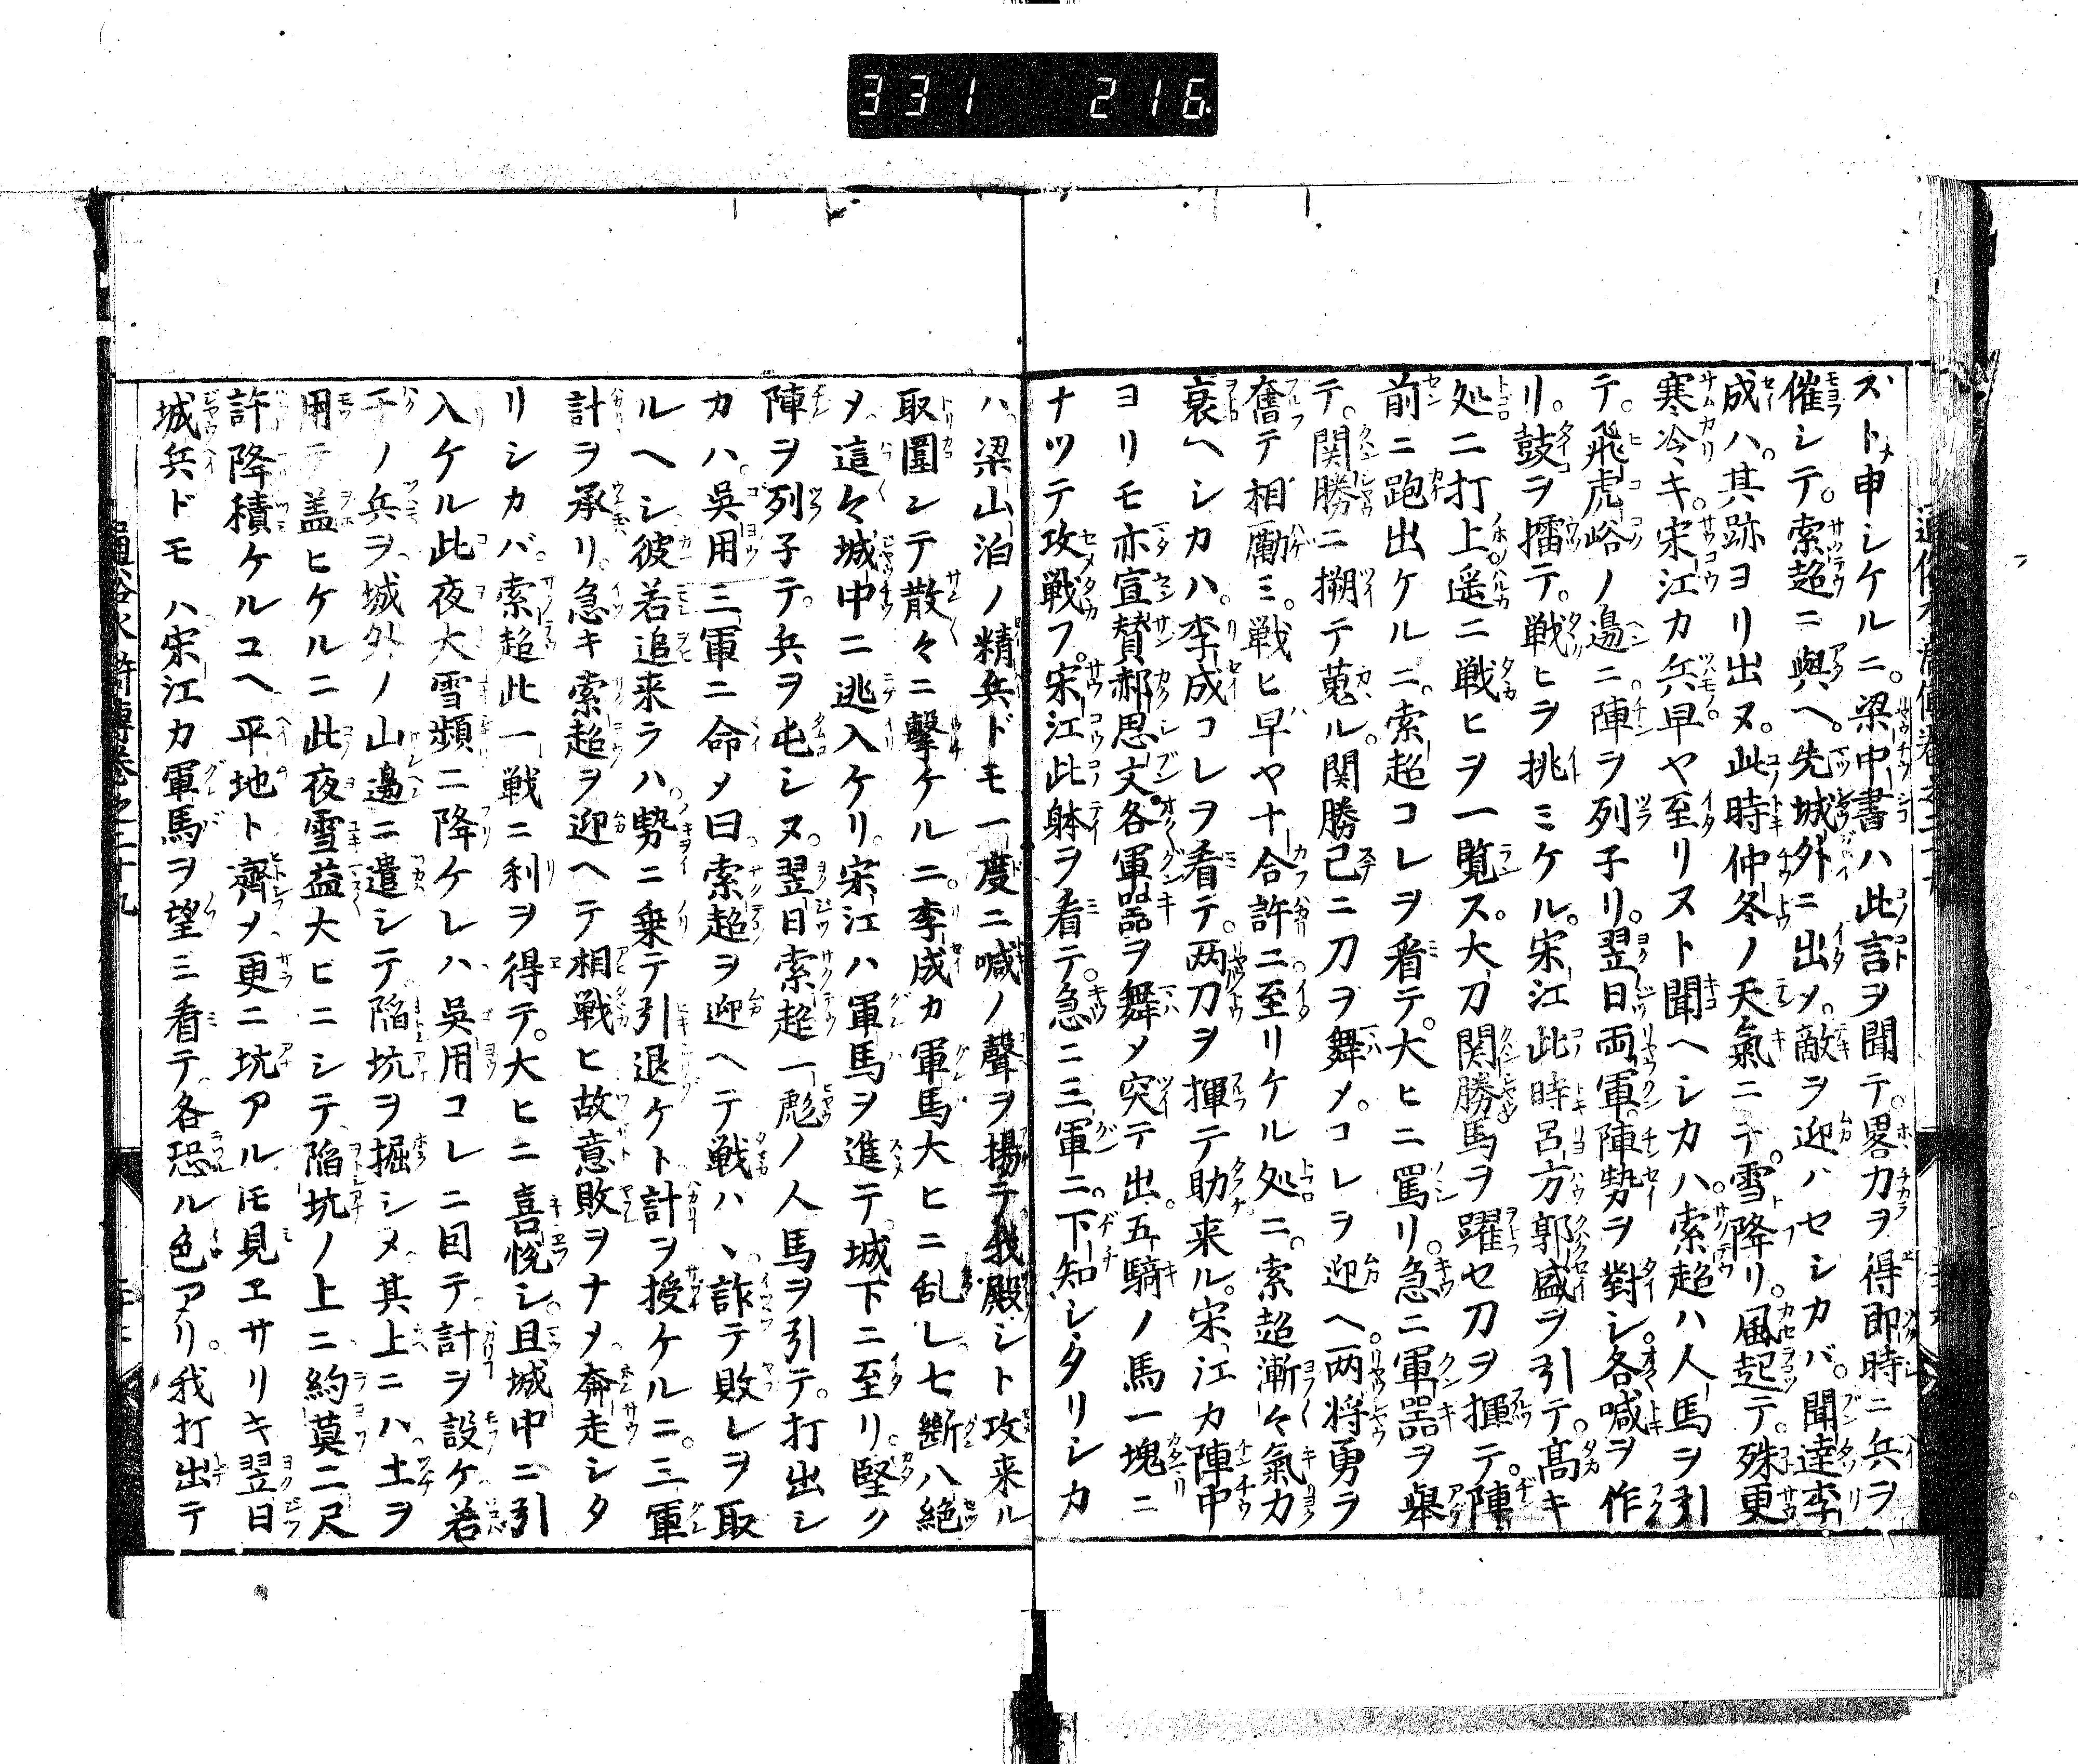 331 216.
ズト申シケルニ。梁中書ハ此言ヲ聞テ。畧力ヲ得即時ニ兵ヲ
催シテ。索超ニ與ヘ。先城外ニ出メ。敵ヲ迎ハセシカバ。聞達李
成ハ。其跡ヨリ出ヌ。此時仲冬ノ天氣ニテ。雪降リ。風起テ。殊更
寒冷キ。宋江カ兵早ヤ至リヌト聞ヘシカハ。索超ハ人馬ヲ引
テ。飛虎峪ノ邉ニ陣ヲ列子リ。翌日両軍陣勢ヲ對シ。各喊ヲ作
リ。鼓ヲ擂テ。戦ヒヲ挑ミケル。宋江此時呂方郭盛ヲ引テ。髙キ
処ニ打上遥ニ戦ヒヲ一覧ス。大刀関勝馬ヲ躍セ刀ヲ揮テ。陣
前ニ跑出ケルニ。索超コレヲ看テ。大ヒニ罵リ。急ニ軍噐ヲ舉
テ。関勝ニ搠テ蒐ル。関勝已ニ刀ヲ舞メ。コレヲ迎ヘ。两将勇ヲ
奮テ相勵ミ。戦ヒ早ヤ十合許ニ至リケル処ニ。索超漸々氣力
衰ヘシカハ。李成コレヲ看テ。两刀ヲ揮テ助来ル。宋江カ陣中
ヨリモ亦宣賛郝思文。各軍噐ヲ舞メ突テ出。五騎ノ馬一塊ニ
ナツテ攻戦フ。宋江此躰ヲ看テ。急ニ三軍ニ。下知シタリシカ
ハ。梁山泊ノ精兵ドモ一度ニ喊ノ聲ヲ揚テ我殿シト攻来ル
取圍シテ散々ニ擊ケルニ。李成カ軍馬大ヒニ乱レ。七斷八絶
メ這々城中ニ逃入ケリ。宋江ハ軍馬ヲ進テ城下ニ至リ。堅ク
陣ヲ列子テ。兵ヲ屯シヌ。翌日索超一彪ノ人馬ヲ引テ。打出シ
カハ。吳用三軍ニ命メ曰。索超ヲ迎ヘテ戦ハヽ。詐テ敗レヲ取
ルヘシ彼若追来ラハ。勢ニ乗テ引退ケト計ヲ授ケルニ。三軍
計ヲ承リ。急キ索超ヲ迎ヘテ相戦ヒ故意敗ヲナメ。奔走シタ
リシカバ。索超此一戦ニ利ヲ得テ。大ヒニ喜悦シ。且城中ニ引
入ケル此夜大雪頻ニ降ケレハ吳用コレニ因テ。計ヲ設ケ若
干ノ兵ヲ城外ノ山邉ニ遣シテ陷坑ヲ掘シメ其上ニハ土ヲ
用テ盖ヒケルニ此夜雪益大ヒニシテ陷坑ノ上ニ約莫二尺
許降積ケルユヘ平地ト齊メ更ニ坑アルヒ見エサリキ翌日
城兵ドモハ宋江カ軍馬ヲ望ミ看テ各恐ル色アリ。我打出テ
通俗水滸傳巻之二十九